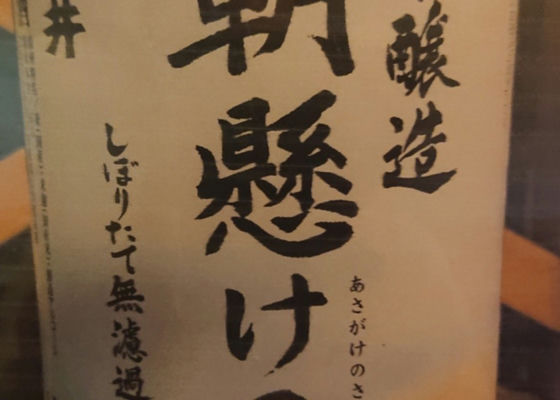 醸造
朝懸けの
あさがけのさ
しぼりたて無濾過
井